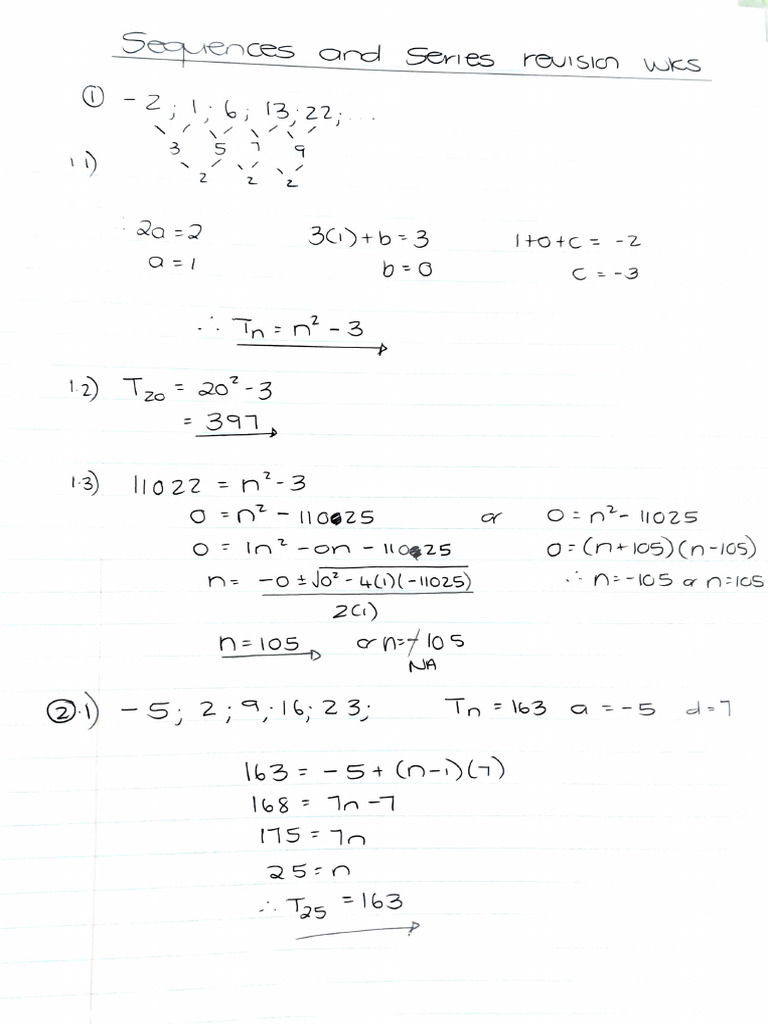 Sequences and Series revision wks
① -2 ; 1 ; 6 ; 13 ; 22 ; ...
3 5 7 9
1.1)
2 2 2
∴ 2a = 2 3(1) + b = 3 1+0+c = -2
a = 1 b = 0 c = -3
∴ Tn = n² - 3
1.2) T20 = 20² - 3
= 397
1.3) 11022 = n² - 3
0 = n² - 11025 or 0 = n² - 11025
0 = 1n² - 0n - 11025 0 = (n+105)(n-105)
n = -0 ± √0² - 4(1)(-11025) ∴ n = -105 or n = 105
2(1)
n = 105 or n = -105
NA
②.1) -5 ; 2 ; 9 ; 16 ; 23 ; Tn = 163 a = -5 d = 7
163 = -5 + (n-1)(7)
168 = 7n - 7
175 = 7n
25 = n
∴ T25 = 163